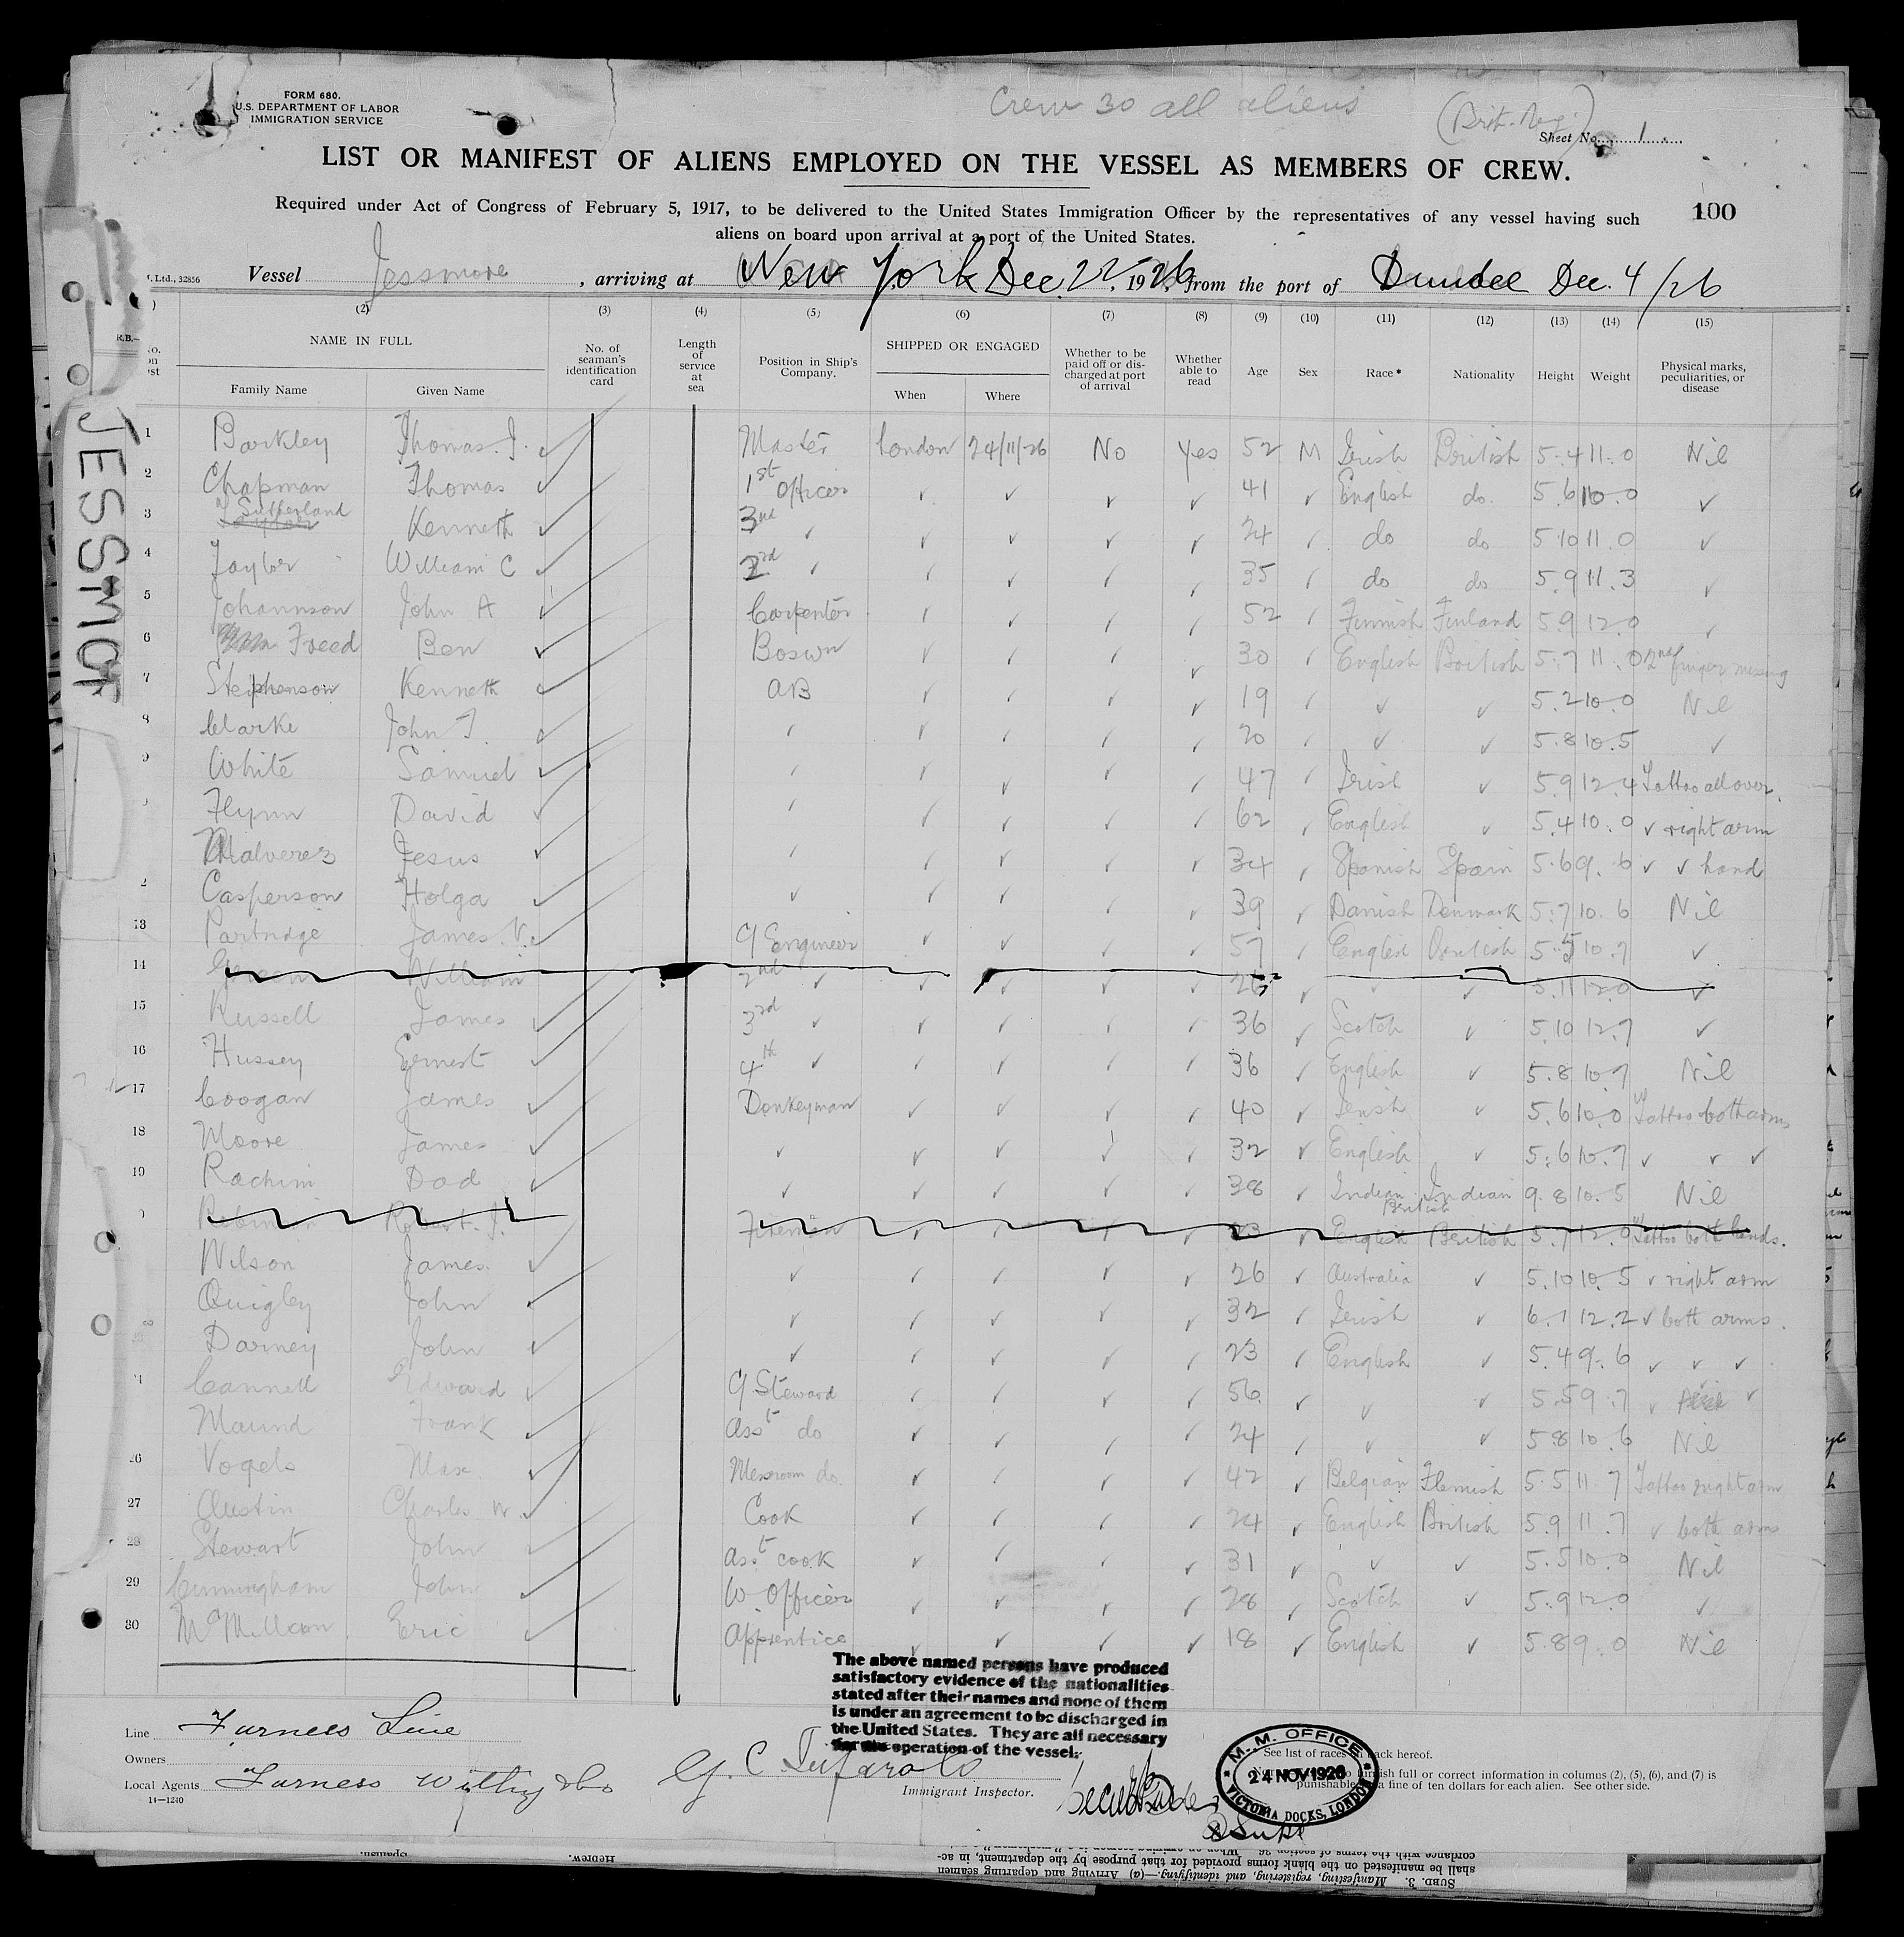 FORM 680.
U.S. DEPARTMENT OF LABOR
IMMIGRATION SERVICE
Crew 30 all aliens
Sheet No. 1
LIST OR MANIFEST OF ALIENS EMPLOYED ON THE VESSEL AS MEMBERS OF CREW.
Required under Act of Congress of February 5, 1917, to be delivered to the United States Immigration Officer by the representatives of any vessel having such
aliens on board upon arrival at a port of the United States.
100
Ltd., 32856 Vessel Jessmore, arriving at New York Dec. 22, 1926, from the port of Dundee Dec. 4/26
JESSMORE
(2) (3) (4) (5) (6) (7) (8) (9) (10) (11) (12) (13) (14) (15)
NAME IN FULL
Family Name Given Name
No. of seaman's identification card
Length of service at sea
Position in Ship's Company.
SHIPPED OR ENGAGED
When Where
Whether to be paid off or discharged at port of arrival
Whether able to read
Age Sex Race* Nationality Height Weight
Physical marks, peculiarities, or disease
1 Barkley Thomas. J. ✓ Master London 24/11/26 No Yes 52 M Irish British 5.4 11.0 Nil
2 Chapman Thomas ✓ 1st Officer ✓ ✓ ✓ ✓ 41 ✓ English do. 5.6 10.0 ✓
3 Sutherland Kenneth ✓ 3rd ✓ ✓ ✓ ✓ ✓ 24 ✓ do do 5.10 11.0 ✓
4 Taylor William C ✓ 2nd ✓ ✓ ✓ ✓ ✓ 35 ✓ do do 5.9 11.3 ✓
5 Johannson John A ✓ Carpenter ✓ ✓ ✓ ✓ 52 ✓ Finnish Finland 5.9 12.0 ✓
6 Freed Ben ✓ Boswn ✓ ✓ ✓ ✓ 30 ✓ English British 5.7 11.0 2nd finger missing
7 Stephenson Kenneth ✓ AB ✓ ✓ ✓ ✓ 19 ✓ ✓ ✓ 5.2 10.0 Nil
8 Clarke John T. ✓ ✓ ✓ ✓ ✓ ✓ 20 ✓ ✓ ✓ 5.8 10.5 ✓
9 White Samuel ✓ ✓ ✓ ✓ ✓ ✓ 47 ✓ Irish ✓ 5.9 12.4 Tattoo all over.
Flynn David ✓ ✓ ✓ ✓ ✓ ✓ 62 ✓ English ✓ 5.4 10.0 ✓ right arm
Malverez Jesus ✓ ✓ ✓ ✓ ✓ ✓ 34 ✓ Spanish Spain 5.6 9.6 ✓ ✓ hand
2 Casperson Holga ✓ ✓ ✓ ✓ ✓ ✓ 39 ✓ Danish Denmark 5.7 10.6 Nil
13 Partridge James. V. ✓ C/Engineer ✓ ✓ ✓ ✓ 57 ✓ English British 5.5 10.7 ✓
14 Green William 2nd ✓ ✓ ✓ ✓ ✓ 26 ✓ ✓ ✓ 5.11 12.0 ✓
15 Russell James ✓ 3rd ✓ ✓ ✓ ✓ ✓ 36 ✓ Scotch ✓ 5.10 12.7 ✓
16 Hussey Ernest ✓ 4th ✓ ✓ ✓ ✓ ✓ 36 ✓ English ✓ 5.8 10.7 Nil
17 Coogan James ✓ Donkeyman ✓ ✓ ✓ ✓ 40 ✓ Irish ✓ 5.6 10.0 Tattoo both arms
18 Moore James ✓ ✓ ✓ ✓ ✓ ✓ 32 ✓ English ✓ 5.6 10.7 ✓ ✓ ✓
19 Rachim Dad ✓ ✓ ✓ ✓ ✓ ✓ 38 ✓ Indian British Indian 9.8 10.5 Nil
Robert. J. Fireman ✓ ✓ ✓ ✓ 23 ✓ English British 5.7 12.0 Tattoo both hands.
Wilson James. ✓ ✓ ✓ ✓ ✓ ✓ 26 ✓ Australia ✓ 5.10 10.5 ✓ right arm
Quigley John ✓ ✓ ✓ ✓ ✓ ✓ 32 ✓ Irish ✓ 6.1 12.2 ✓ both arms.
Darney John ✓ ✓ ✓ ✓ ✓ ✓ 23 ✓ English ✓ 5.4 9.6 ✓ ✓ ✓
Cannell Edward ✓ C/Steward ✓ ✓ ✓ ✓ 56 ✓ ✓ ✓ 5.5 9.7 ✓ ✓
Maund Frank ✓ Asst do ✓ ✓ ✓ ✓ 24 ✓ ✓ ✓ 5.8 10.6 Nil
26 Vogels Max ✓ Messroom do. ✓ ✓ ✓ ✓ 42 ✓ Belgian Flemish 5.5 11.7 Tattoo right arm
27 Austin Charles W. ✓ Cook ✓ ✓ ✓ ✓ 24 ✓ English British 5.9 11.7 ✓ both arms
28 Stewart John ✓ Asst cook ✓ ✓ ✓ ✓ 31 ✓ ✓ ✓ 5.5 10.0 Nil
29 Cunningham John ✓ W Officer ✓ ✓ ✓ ✓ 28 ✓ Scotch ✓ 5.9 12.0 ✓
30 McMillan Eric ✓ Apprentice ✓ ✓ ✓ ✓ 18 ✓ English ✓ 5.8 9.0 Nil
The above named persons have produced
satisfactory evidence of the nationalities
stated after their names and none of them
is under an agreement to be discharged in
the United States. They are all necessary
for the operation of the vessel.
Line Furness Line
Owners
Local Agents Furness Withy & Co
14—1240
Immigrant Inspector.
M. M. OFFICE
24 NOV 1926
VICTORIA DOCKS, LONDON
See list of races on back hereof.
full or correct information in columns (2), (5), (6), and (7) is
punishable a fine of ten dollars for each alien. See other side.
Spanish.
Hebrew.
cordance with the terms of section 36
shall be manifested on the blank forms provided for that purpose by the department, in ac-
SUBD. 3. Manifesting, registering, and identifying.—(a) Arriving and departing seamen